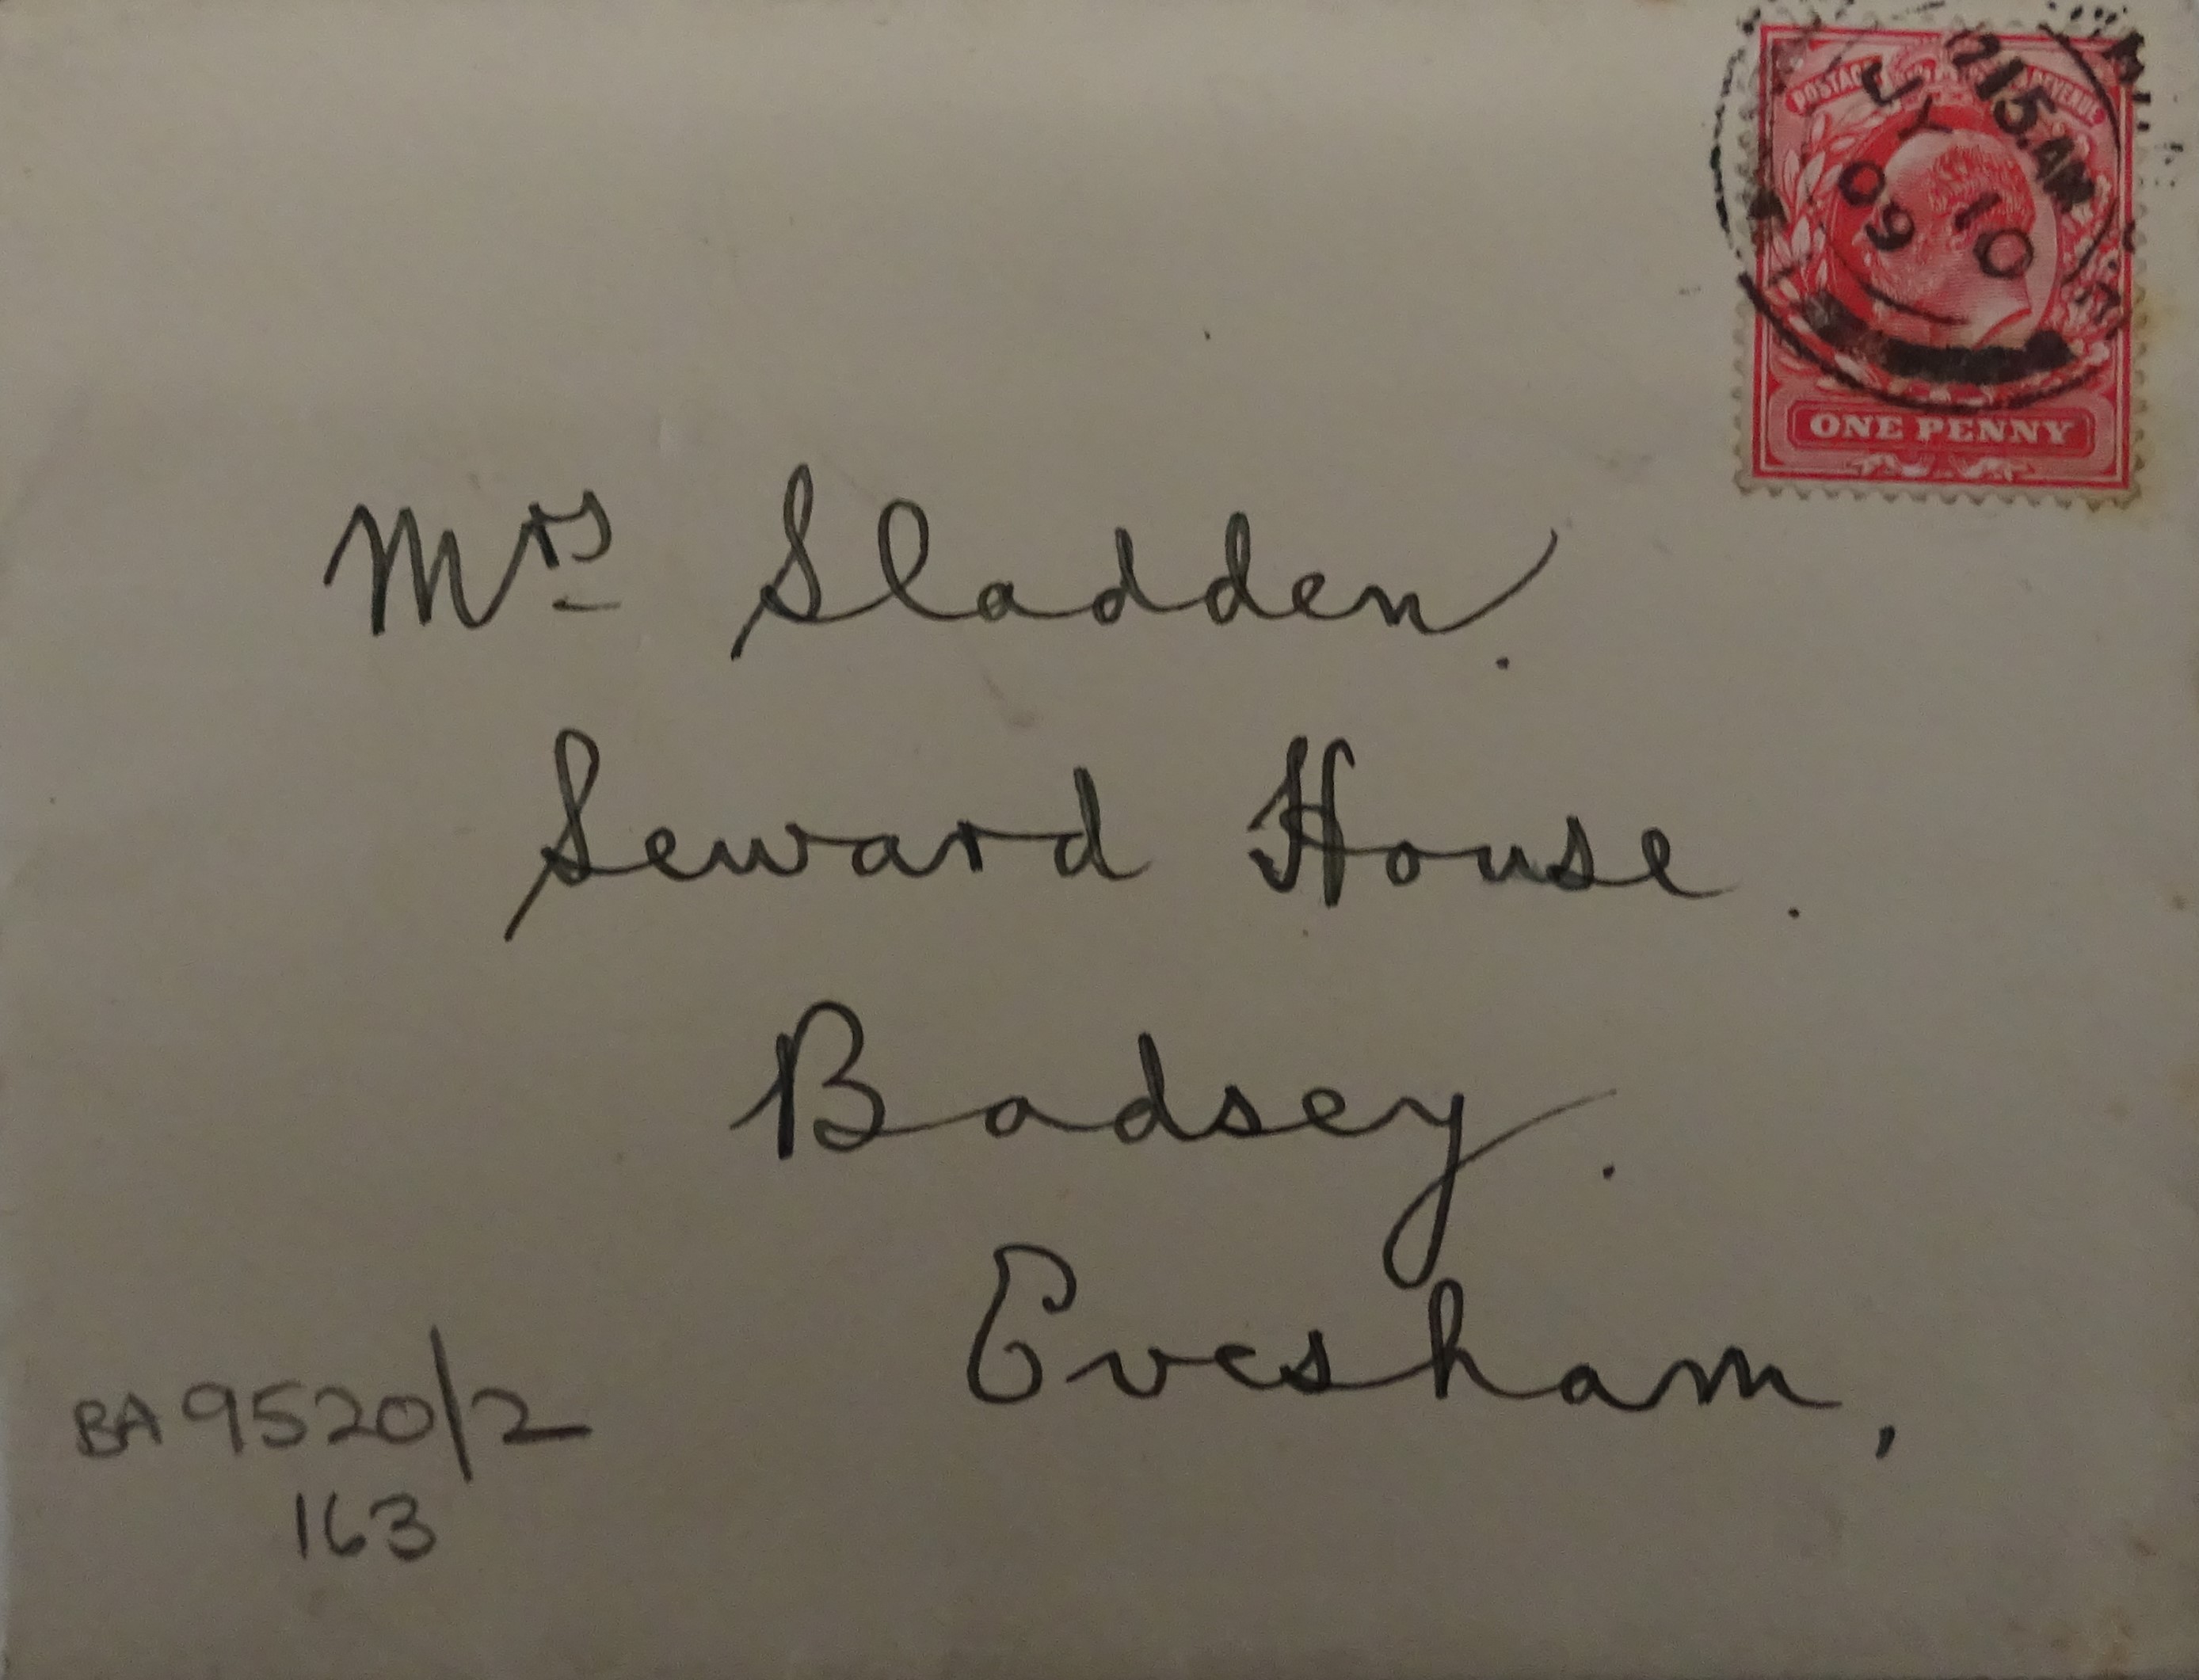 POSTAGE REVENUE
7 15 AM
JY 10
09
ONE PENNY
Mrs Sladden.
Seward House.
Badsey.
Evesham,
BA 9520/2
163